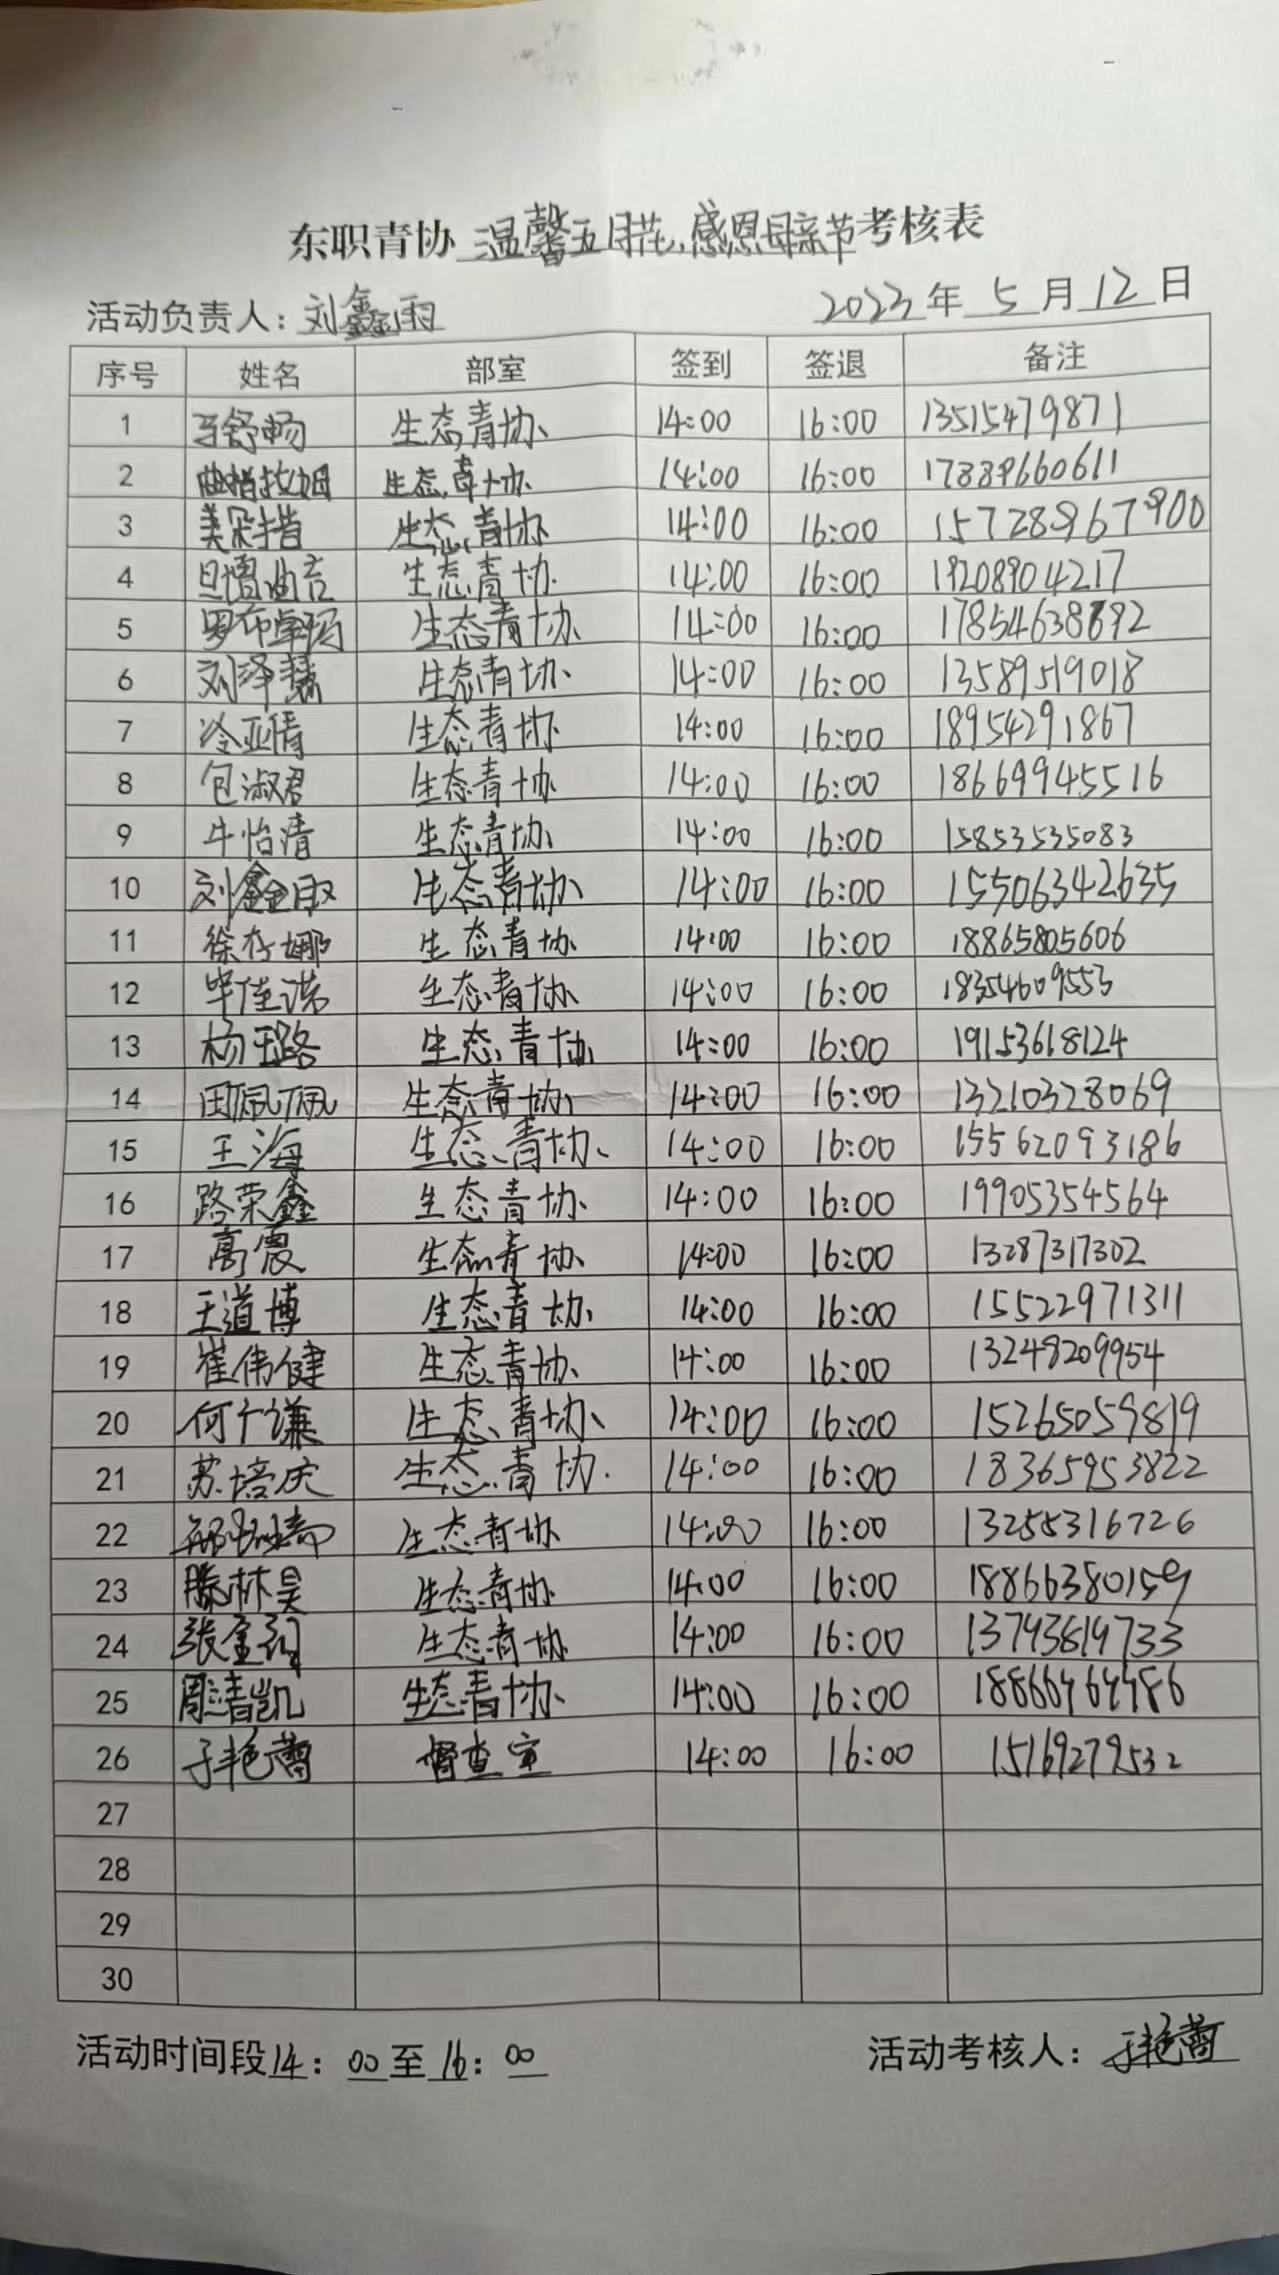 东职青协 温馨五月花,感恩母亲节 考核表
活动负责人: 刘鑫雨 2023 年 5 月 12 日
序号 姓名 部室 签到 签退 备注
1 马舒畅 生态青协 14:00 16:00 13515479871
2 曲措拉姆 生态青协 14:00 16:00 17889660611
3 美朵措 生态青协 14:00 16:00 15728967900
4 旦增曲吉 生态青协 14:00 16:00 19208904217
5 罗布卓玛 生态青协 14:00 16:00 17854638892
6 刘泽慧 生态青协 14:00 16:00 13589519018
7 冷亚倩 生态青协 14:00 16:00 18954291867
8 包淑君 生态青协 14:00 16:00 18669945516
9 牛怡清 生态青协 14:00 16:00 15853535083
10 刘鑫雨 生态青协 14:00 16:00 15506342635
11 徐存娜 生态青协 14:00 16:00 18865805606
12 毕佳诺 生态青协 14:00 16:00 18354609553
13 杨玉路 生态青协 14:00 16:00 19153618124
14 田佩佩 生态青协 14:00 16:00 13210328069
15 王海 生态青协 14:00 16:00 15562093186
16 路荣鑫 生态青协 14:00 16:00 19905354564
17 高震 生态青协 14:00 16:00 13287317302
18 王道博 生态青协 14:00 16:00 15522971311
19 崔伟健 生态青协 14:00 16:00 13248209954
20 何广谦 生态青协 14:00 16:00 15265059819
21 苏培庆 生态青协 14:00 16:00 18365953822
22 生态青协 14:00 16:00 13255316726
23 滕林昊 生态青协 14:00 16:00 18866380159
24 张金 生态青协 14:00 16:00 13793819733
25 周清凯 生态青协 14:00 16:00 18866464486
26 于艳蕾 督查室 14:00 16:00 15169279532
27
28
29
30
活动时间段 14: 00 至 16: 00 活动考核人: 于艳蕾